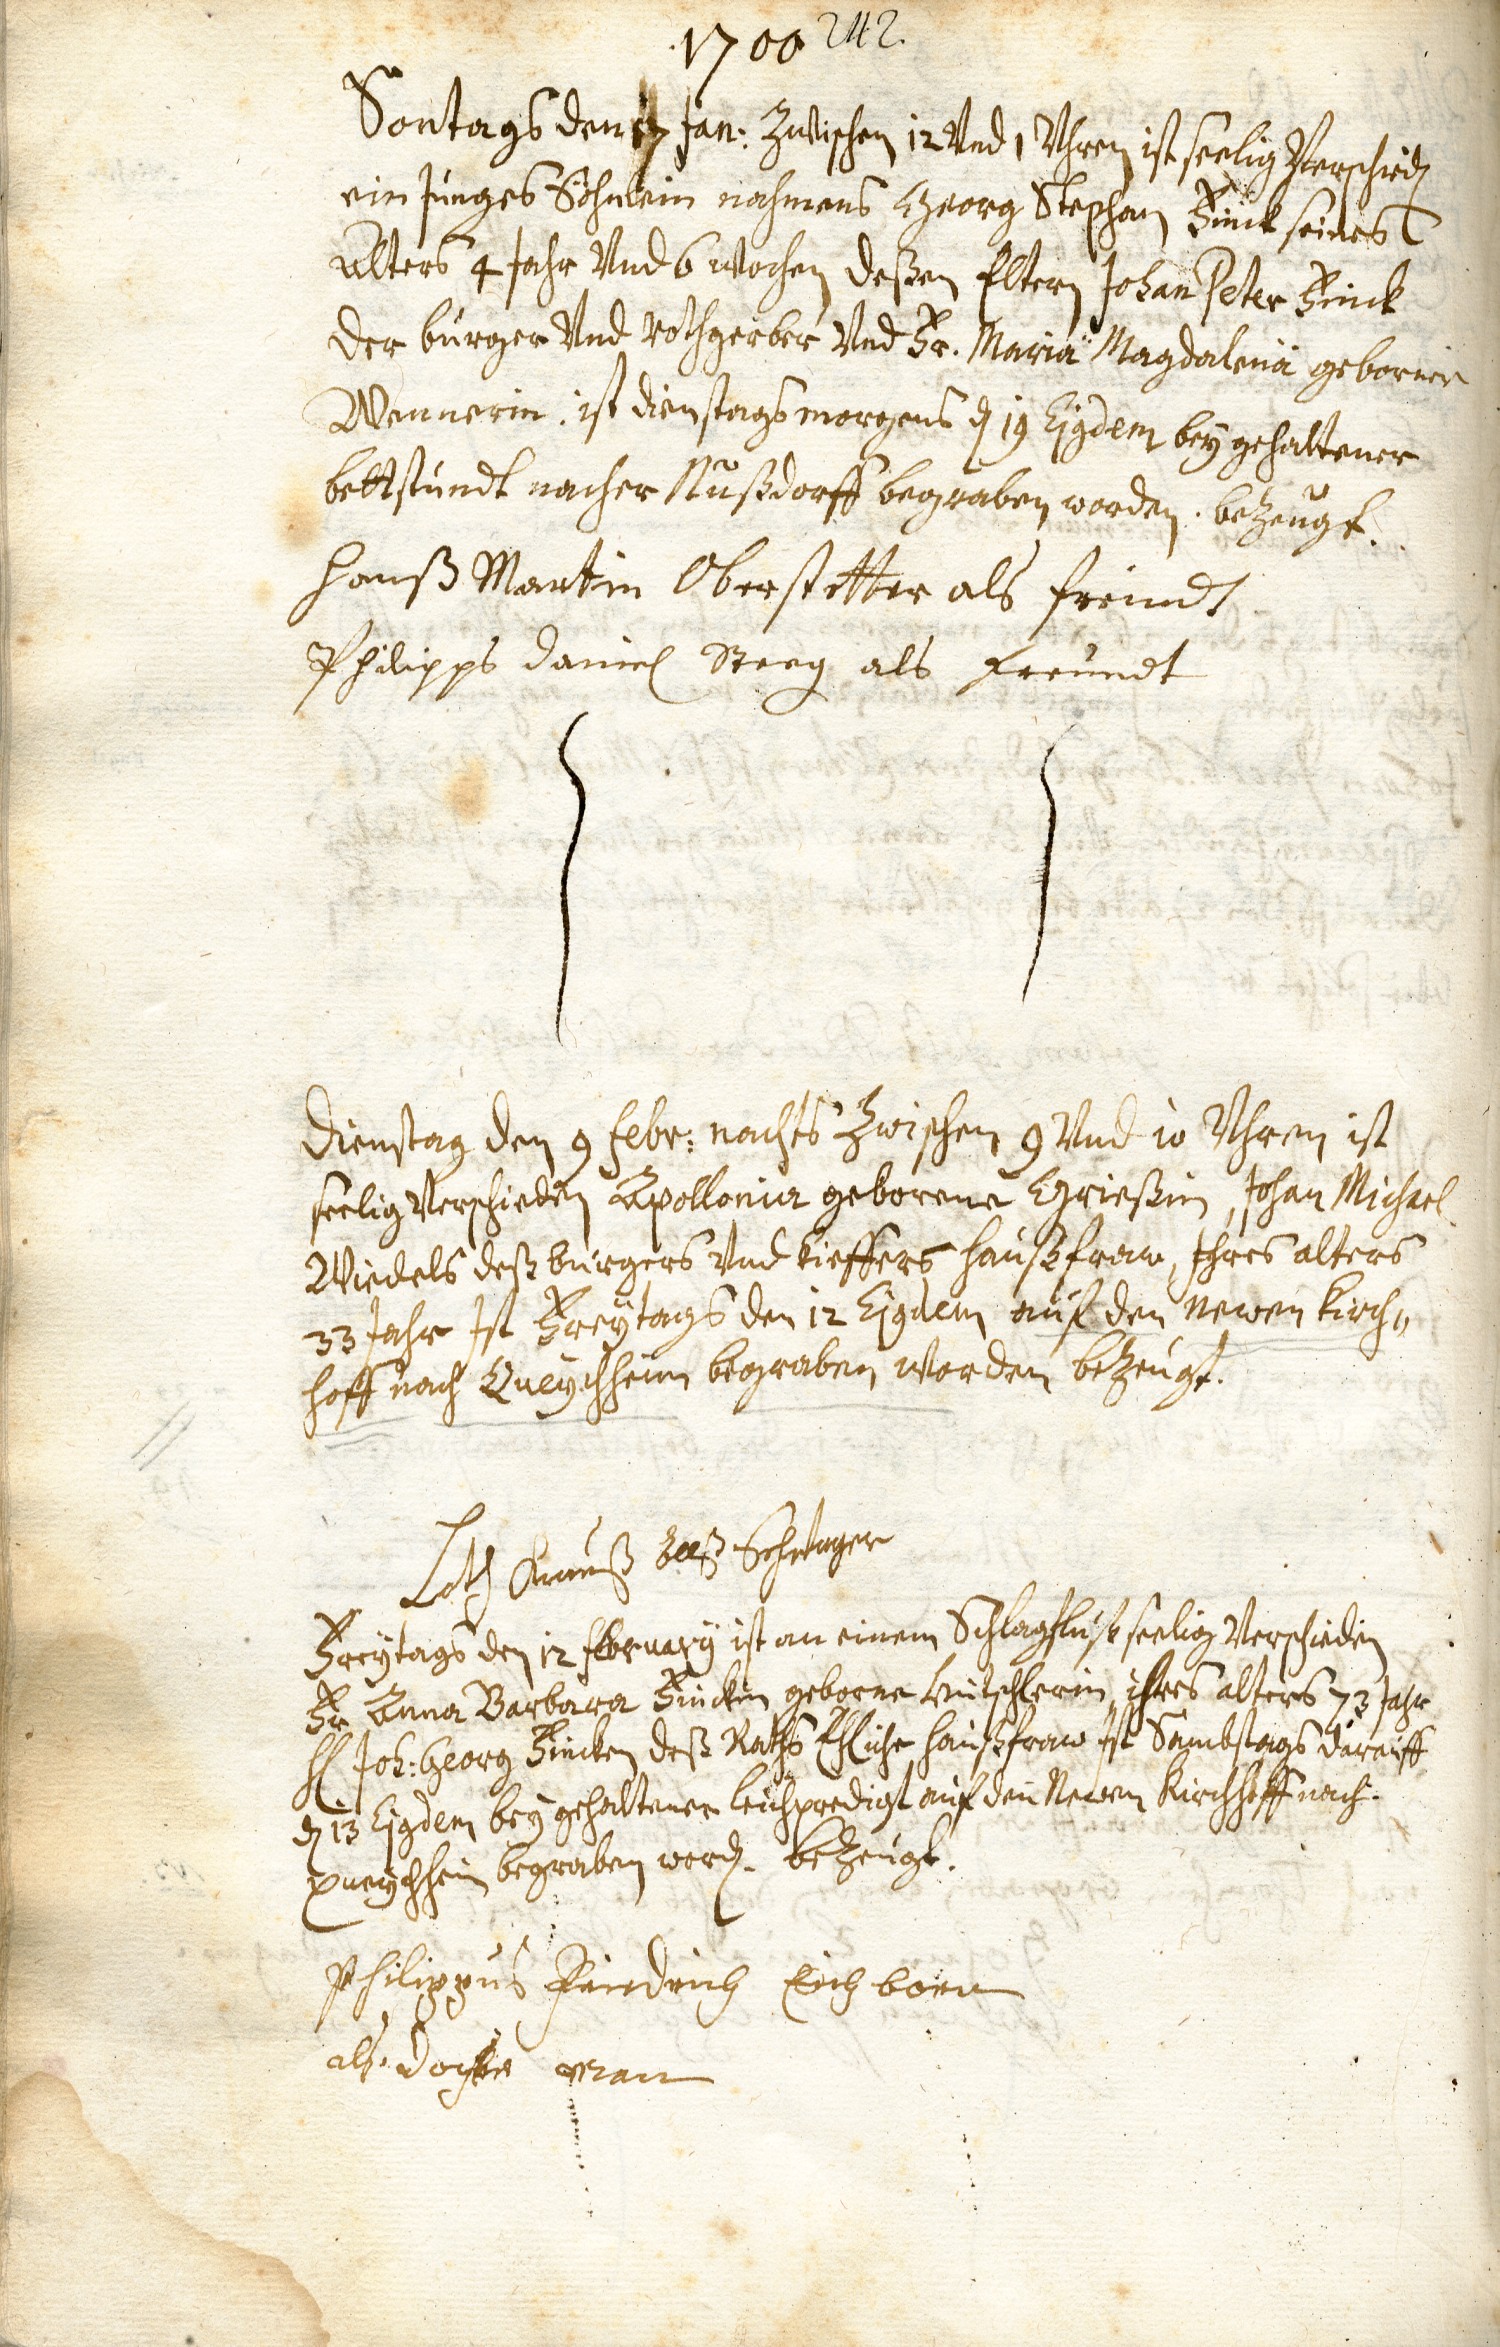 1700 242.
Sontags den 17 Jan: Zwischen 12 Vnd 1 Vhren ist seelig Verschieden
ein Junges Söhnlein nahmens Georg Stephan Finck seines
alters 4 Jahr Vnd 6 wochen deßen Eltern Johan Peter Finck
der burger Vnd rothgerber Vnd Fr. Maria Magdalena geborne
Wennerin. ist dienstags morgens den 19 Ejgdem bey gehaltener
bettstundt nacher Nußdorff begraben worden. bezeugt.
Hanß Martin Oberstetter als freindt
Philipps daniel Steeg als Freundt
dienstag den 9 febr: nachts Zwischen 9 Vnd 10 Vhren ist
seelig Verschieden Apollonia geborene Grießin, Johan Michael
Wiedels deß burgers Vnd kieffers haußfraw, Ihres alters
33 Jahr Ist Freytags den 12 Ejgdem auf den newen kirch„
hoff nach Queychheim begraben worden bezeugt.
Krauß Schwager
Freytags den 12 february ist an einem Schlagfluß seelig Verschieden
Fr Anna Barbara Finckin geborne ihres alters 73 Jahr
H Joh: Georg Fincken deß Raths Ehliche haußfraw Ist Sambstags darauff
den 13 Ejgdem bey gehaltener leichpredigt auf den Newen Kirchhoff nach
queychheim begraben word. bezeugt.
Philippus Friedrich Eichborn
als dochter man